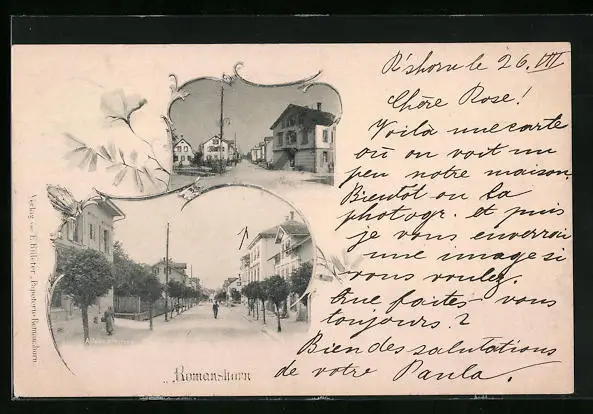 R'shorn le 26. VIII
Chère Rose!
Voilà une carte
où on voit un
peu notre maison.
Bientôt on la
photogr. et puis
je vous enverrai
une image si
vous voulez.
Que faites-vous
toujours?
Bien des salutations
de votre Paula.
Romanshorn
Verlag von E. Billeter, Papeterie Romanshorn